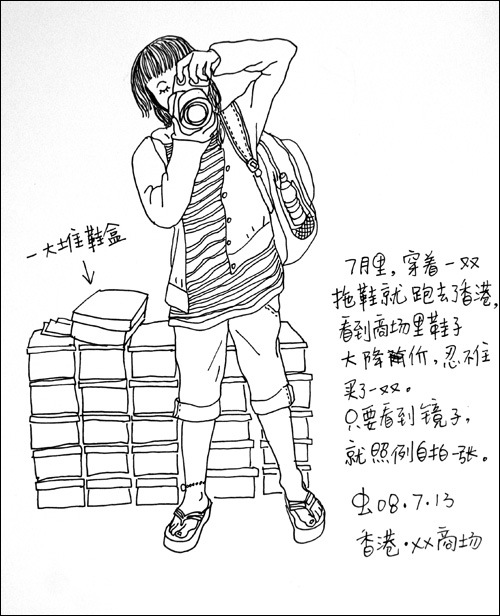 一大堆鞋盒
7月里，穿着一双
拖鞋就跑去了香港，
看到商场里鞋子
大降价，忍不住
买了一双。
只要看到镜子，
就照例自拍一张。
虫08.7.13
香港·xx商场